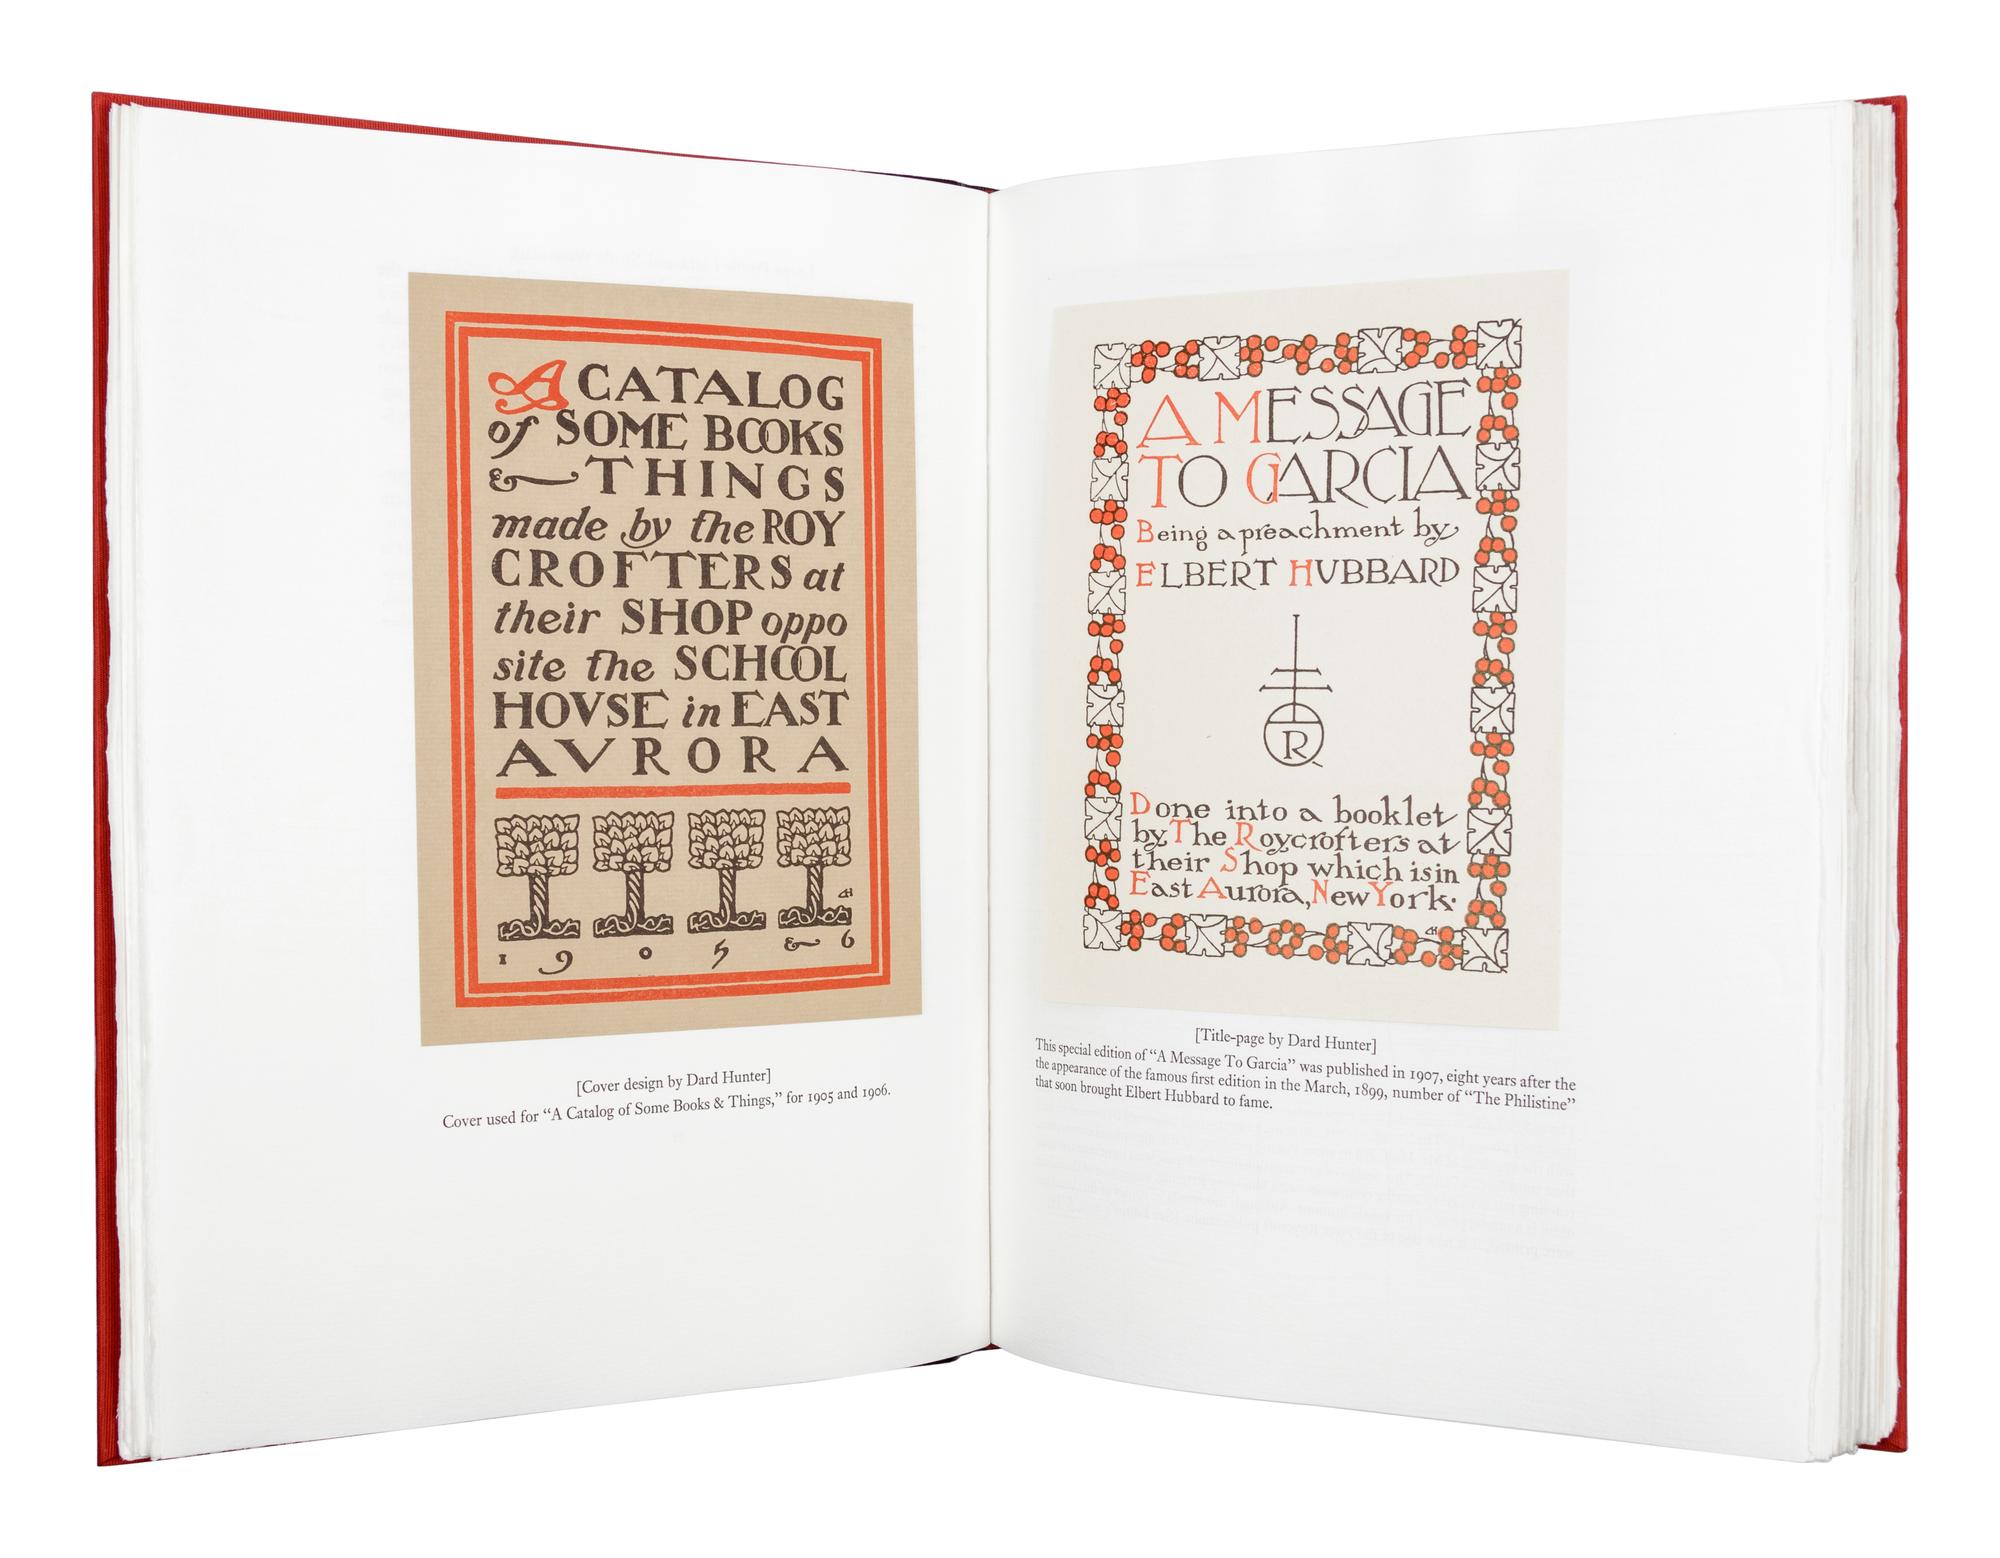 A CATALOG
of SOME BOOKS
& THINGS
made by the ROY
CROFTERS at
their SHOP oppo
site the SCHOOL
HOVSE in EAST
AVRORA
DH
1 9 0 5 & 6
[Cover design by Dard Hunter]
Cover used for “A Catalog of Some Books & Things,” for 1905 and 1906.
A MESSAGE
TO GARCIA
Being a preachment by
ELBERT HUBBARD
R
Done into a booklet
by The Roycrofters at
their Shop which is in
East Aurora, New York.
DH
[Title-page by Dard Hunter]
This special edition of “A Message To Garcia” was published in 1907, eight years after the
the appearance of the famous first edition in the March, 1899, number of “The Philistine”
that soon brought Elbert Hubbard to fame.